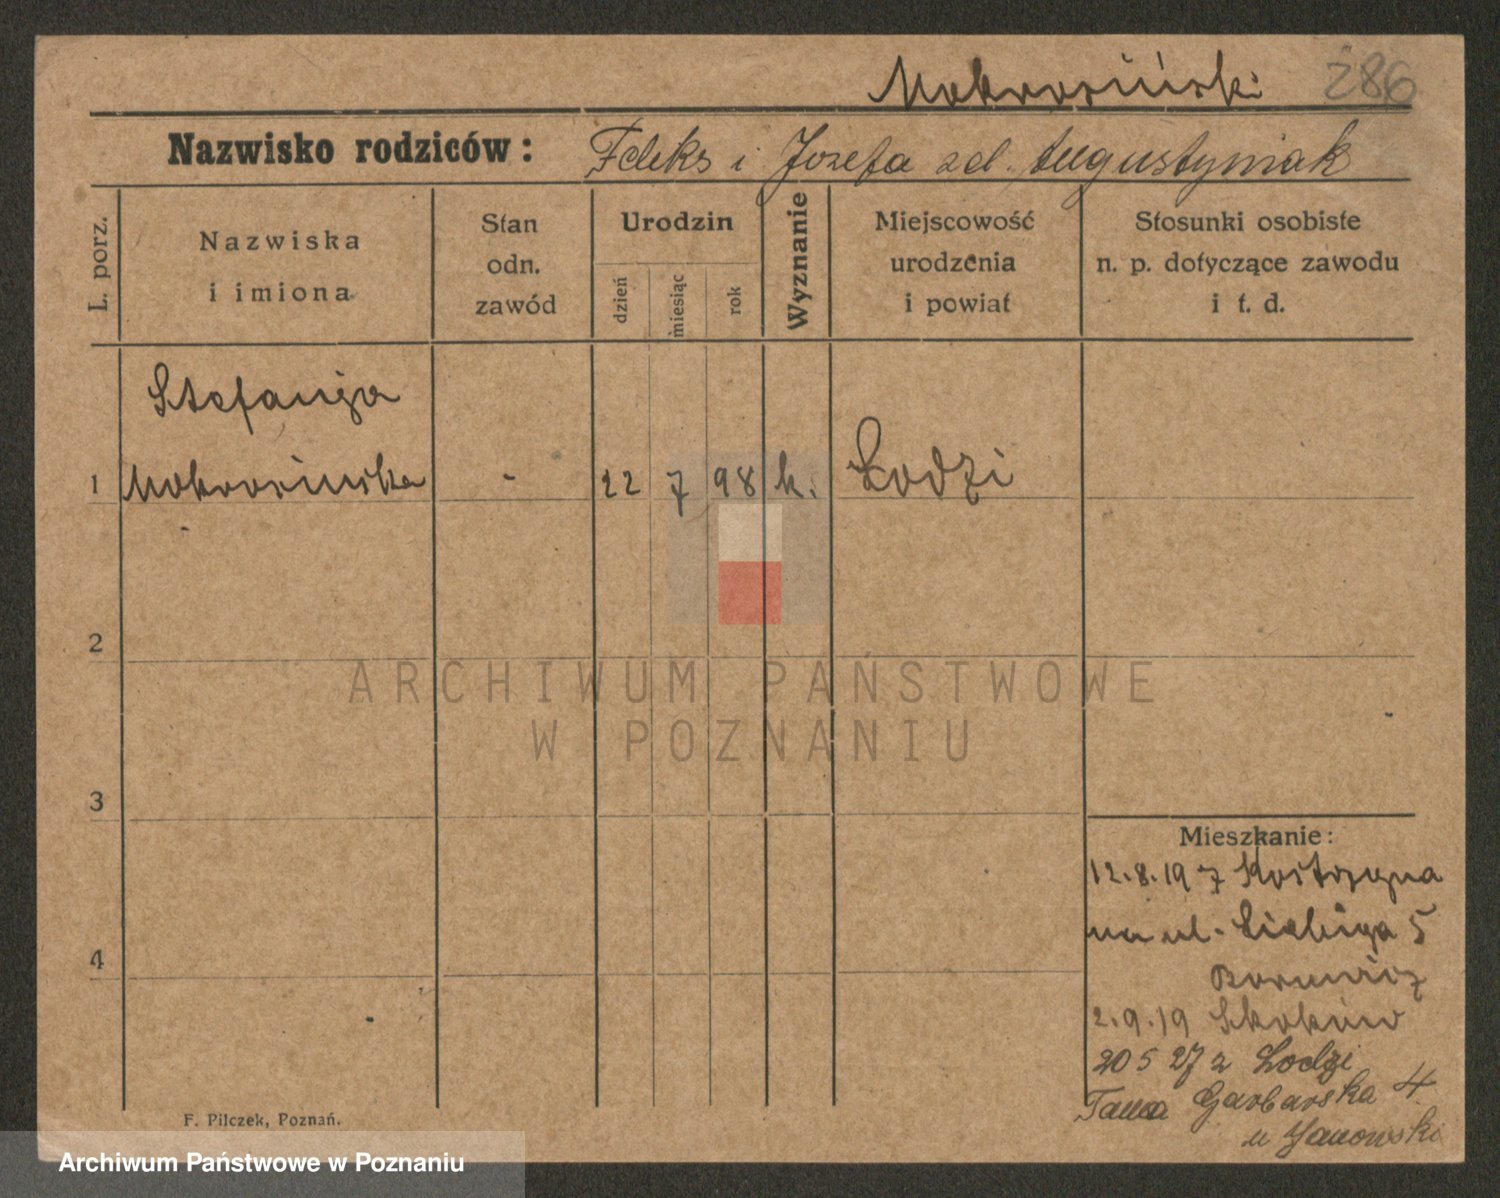 Mokrosiński 286
Nazwisko rodziców: Feliks i Józefa zd. Augustyniak
L. porz.
Nazwiska
i imiona
Stan
odn.
zawód
Urodzin
dzień
miesiąc
rok
Wyznanie
Miejscowość
urodzenia
i powiat
Stosunki osobiste
n. p. dotyczące zawodu
i t. d.
Stefanja
1 Mokrosińska - 22 7 98 k. Łodzi
2
3
4
Mieszkanie:
12.8.19 z Kostrzyna
na ul. 5
2.9.19 Skoków
20 5 27 z Łodzi
Tama Garbarska 4.
u Janowski
F. Pilczek, Poznań.
ARCHIWUM PAŃSTWOWE
W POZNANIU
Archiwum Państwowe w Poznaniu